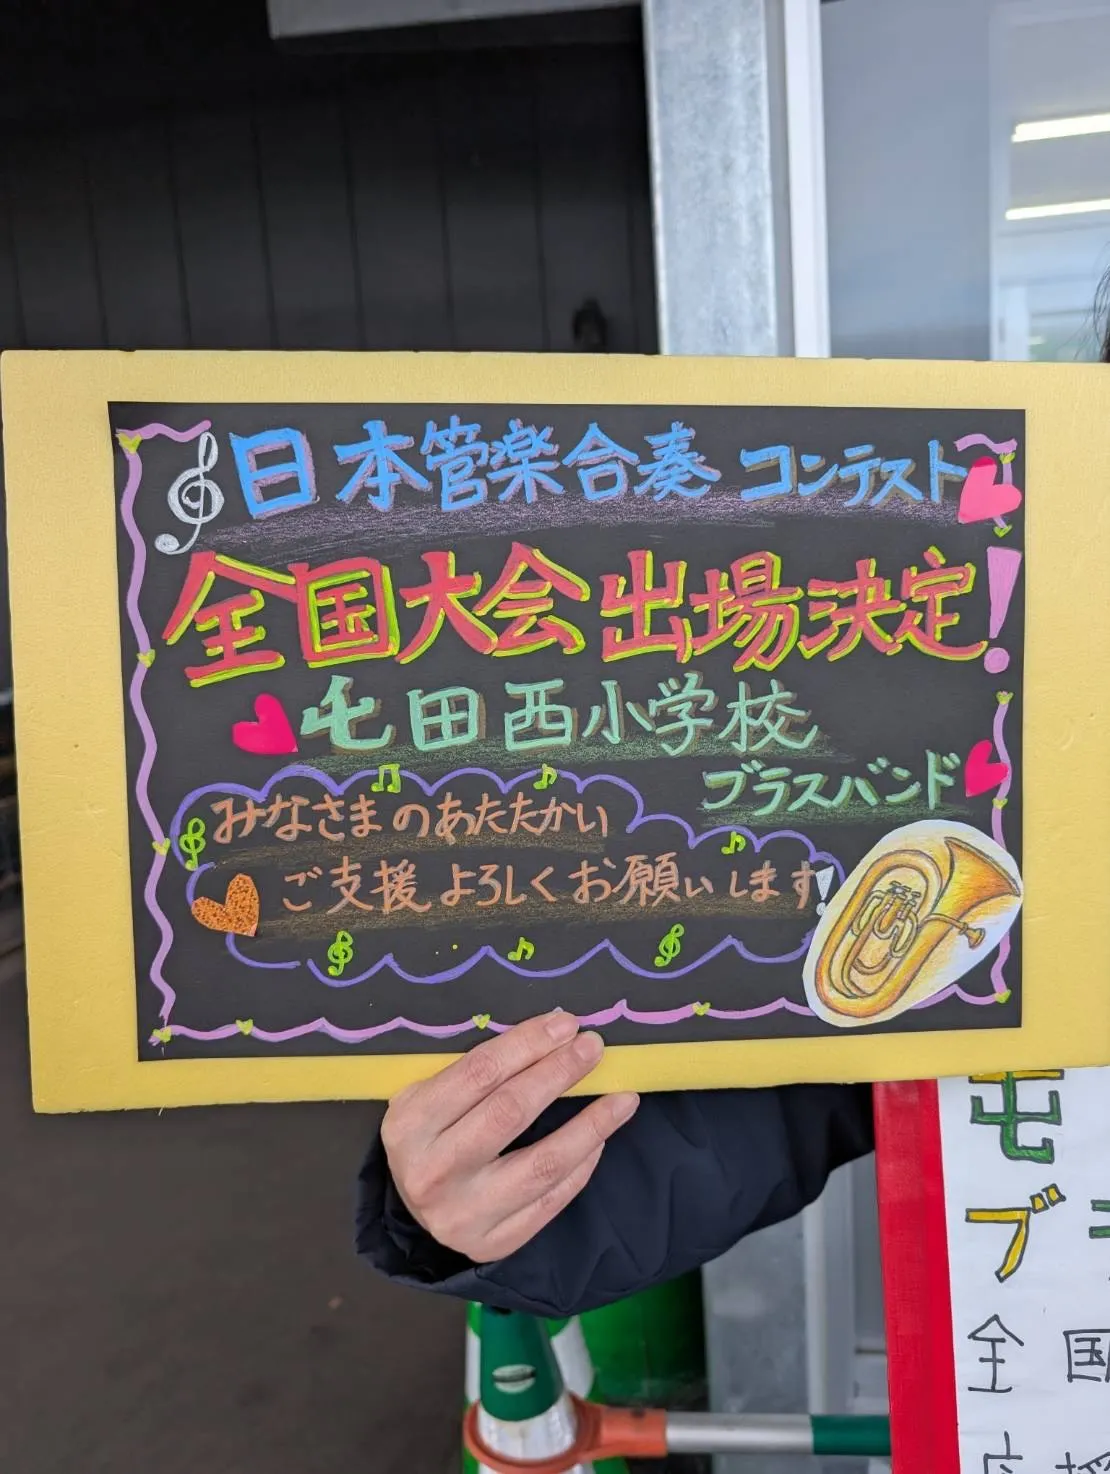 日本管楽合奏コンテスト
全国大会出場決定!
屯田西小学校
ブラスバンド
みなさまのあたたかい
ご支援よろしくお願いします!
屯
ブ
全国